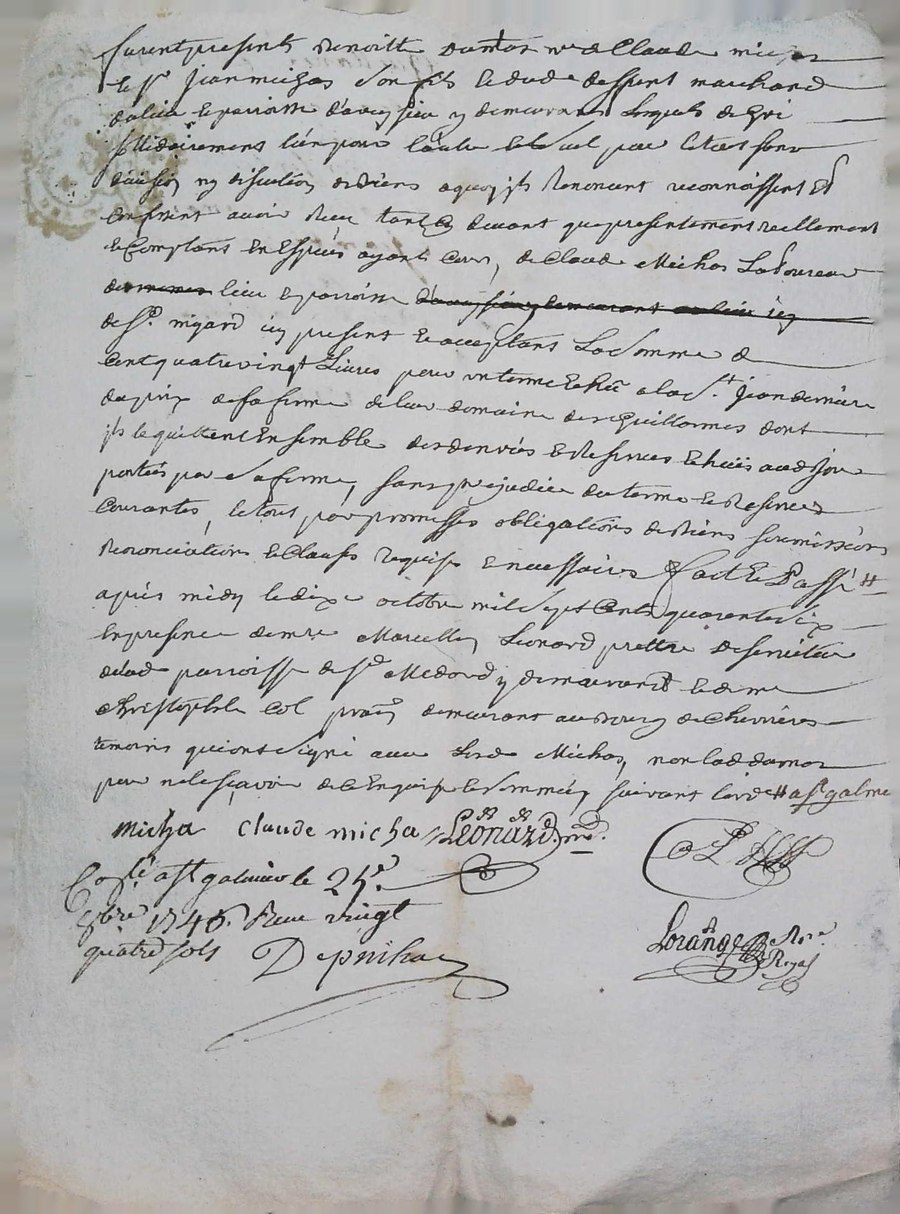 furent presents Benoitte damas ve de Claude micha
et Sr Jean michas son fils et dud deffunt marchand
du lieu et parroisse d'aveysieu y demeurant Lesquels de gré
sollidairement l'un pour l'autre et le seul pour le tout sans
division ny discution de biens a quoy ils Renoncent reconnoissent et
confessent avoir Reçu tant cy devant que presentement reellement
et Comptant en Espèces ayant cours, de Claude Michas Laboureur
lieu et parroisse
de St present et acceptant La somme de
Cent quatre vingt Livres pour un terme Echu a la St Jean derniere
du prix de sa ferme de leur domaine des Guillormes dont
ils le quittent Ensemble des denrés et Reserves Echuës audit jour
portés par sa ferme, sans prejudice du terme et Reserves
Courantes, le tout par promesses obligations de biens soumissions
Renonciations et Clauses requises et necessaires fait et Passé #
après midy le dix octobre mil sept Cents quarante six
En presence de mre Marcellin Léonard prettre desserviteur
de lad parroisse de St Medard y demeurant et de me
christophle Col prat demeurant au Bourg de Chevrières
temoins qui ont signé avec Lesd Michas, non lad damas
pour ne le sçavoir de ce Enquise et sommée, suivant l'ord # a St galmier
micha claude micha Léonard
Conlé a St galmier le 25e
8bre 1746. Reçu vingt
quatre sols
Col
Lorange Nore
Royal